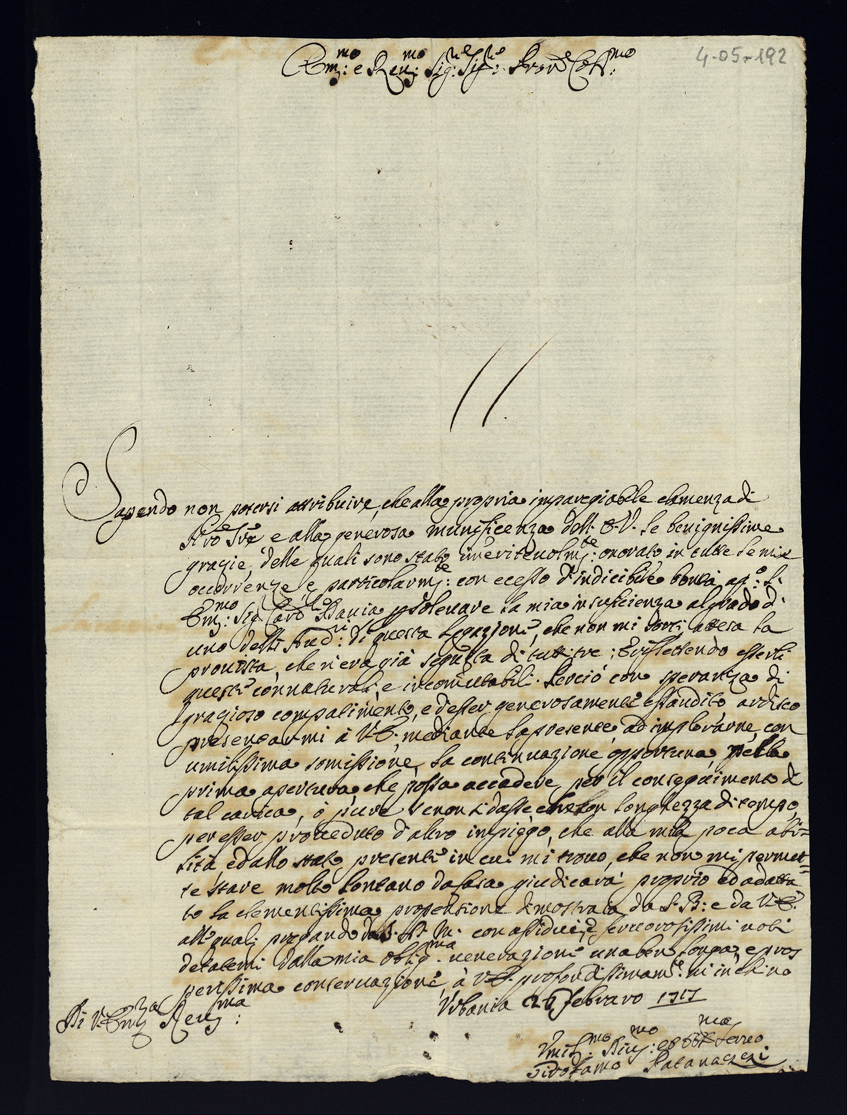 4-05-192
Em:mo e Rev:mo Sig:re Sig:re Pron̄e Coll:mo
Sapendo non potersi attribuire, che alla propria impareggiabile clemenza di
N'ro Sig:re e alla generosa munificenza dell' E.V. le benignissime
grazie, delle quali sono stato imeritevolm:te onorato in tutte le mie
occorrenze e particolarm:te con ecesso d'indicibile bontà
Em:mo Sig: Card: Davia la mia insuficienza al grado di
uno delli Aud:ri di questa Legazione, che non mi attesa la
provista, che n'era già seguita di tutti tre; riflettendo esserli
questi connaturali e incomutabili. Perciò con speranza di
grazioso compatimento, e d'esser generosamente essaudito ardisco
presentarmi à V.E. mediante la presente ad implorarne con
umilissima somissione la continuazione opportuna nella
prima apertura che possa accadere per il conseguimento di
tal carica, ò pure se non si dasse longhezza di tempo,
per esser proveduto d'altro impiego, che alla mia poca abi=
lità, ed allo stato presente in cui mi trovo, che non mi permet=
te stare molto lontano da Casa giudicarà proprio ed adatta
to la clementissima propensione dimostrata da S. S.tà: e da V.E.
alli quali pregando da con assidui, e fervorosissimi voti
dettatemi dalla mia oblig:ma venerazione una ben longa, e pros
perissima conservazione, à V.E. profondissimam:te m'inchino
Di V. Em:za Rev:ma
Urbania 26 Febraro 1717
Umil:mo Div:mo ed Obl:mo Servo
Piccolomo Patanazzi